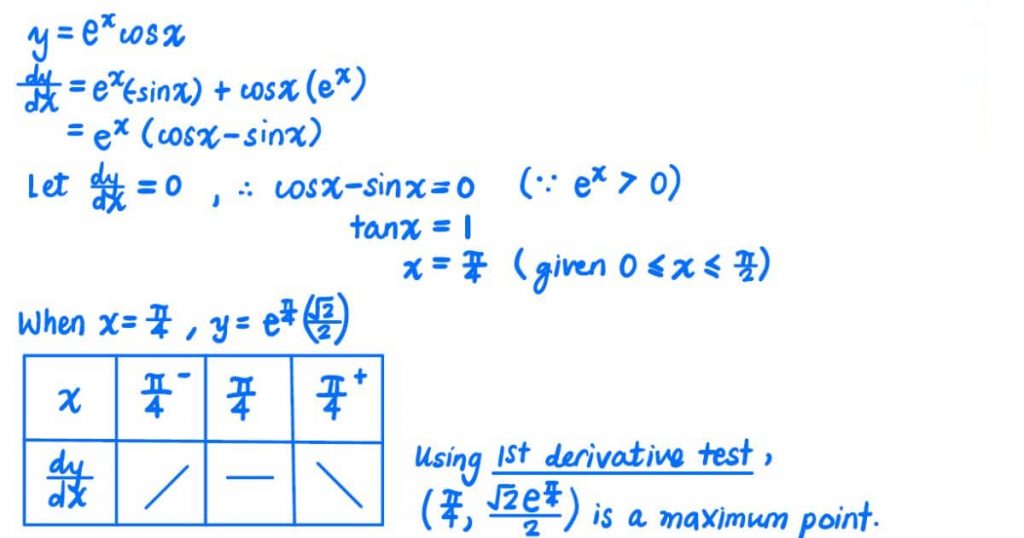 y = eˣ cosx
dy/dx = eˣ(-sinx) + cosx (eˣ)
= eˣ (cosx - sinx)
Let dy/dx = 0 , ∴ cosx - sinx = 0 (∵ eˣ > 0)
tanx = 1
x = π/4 (given 0 ≤ x ≤ π/2)
When x = π/4 , y = e^(π/4) (√2/2)
x π/4⁻ π/4 π/4⁺
dy/dx / — \
Using 1st derivative test,
(π/4, √2e^(π/4)/2) is a maximum point.